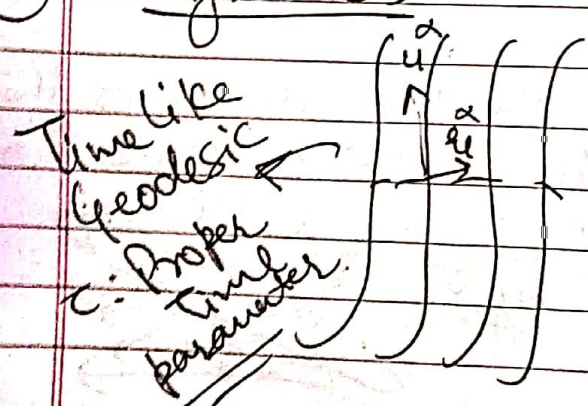 Time like
Geodesic
τ: Proper
Time
parameter.
u^α
ξ^α